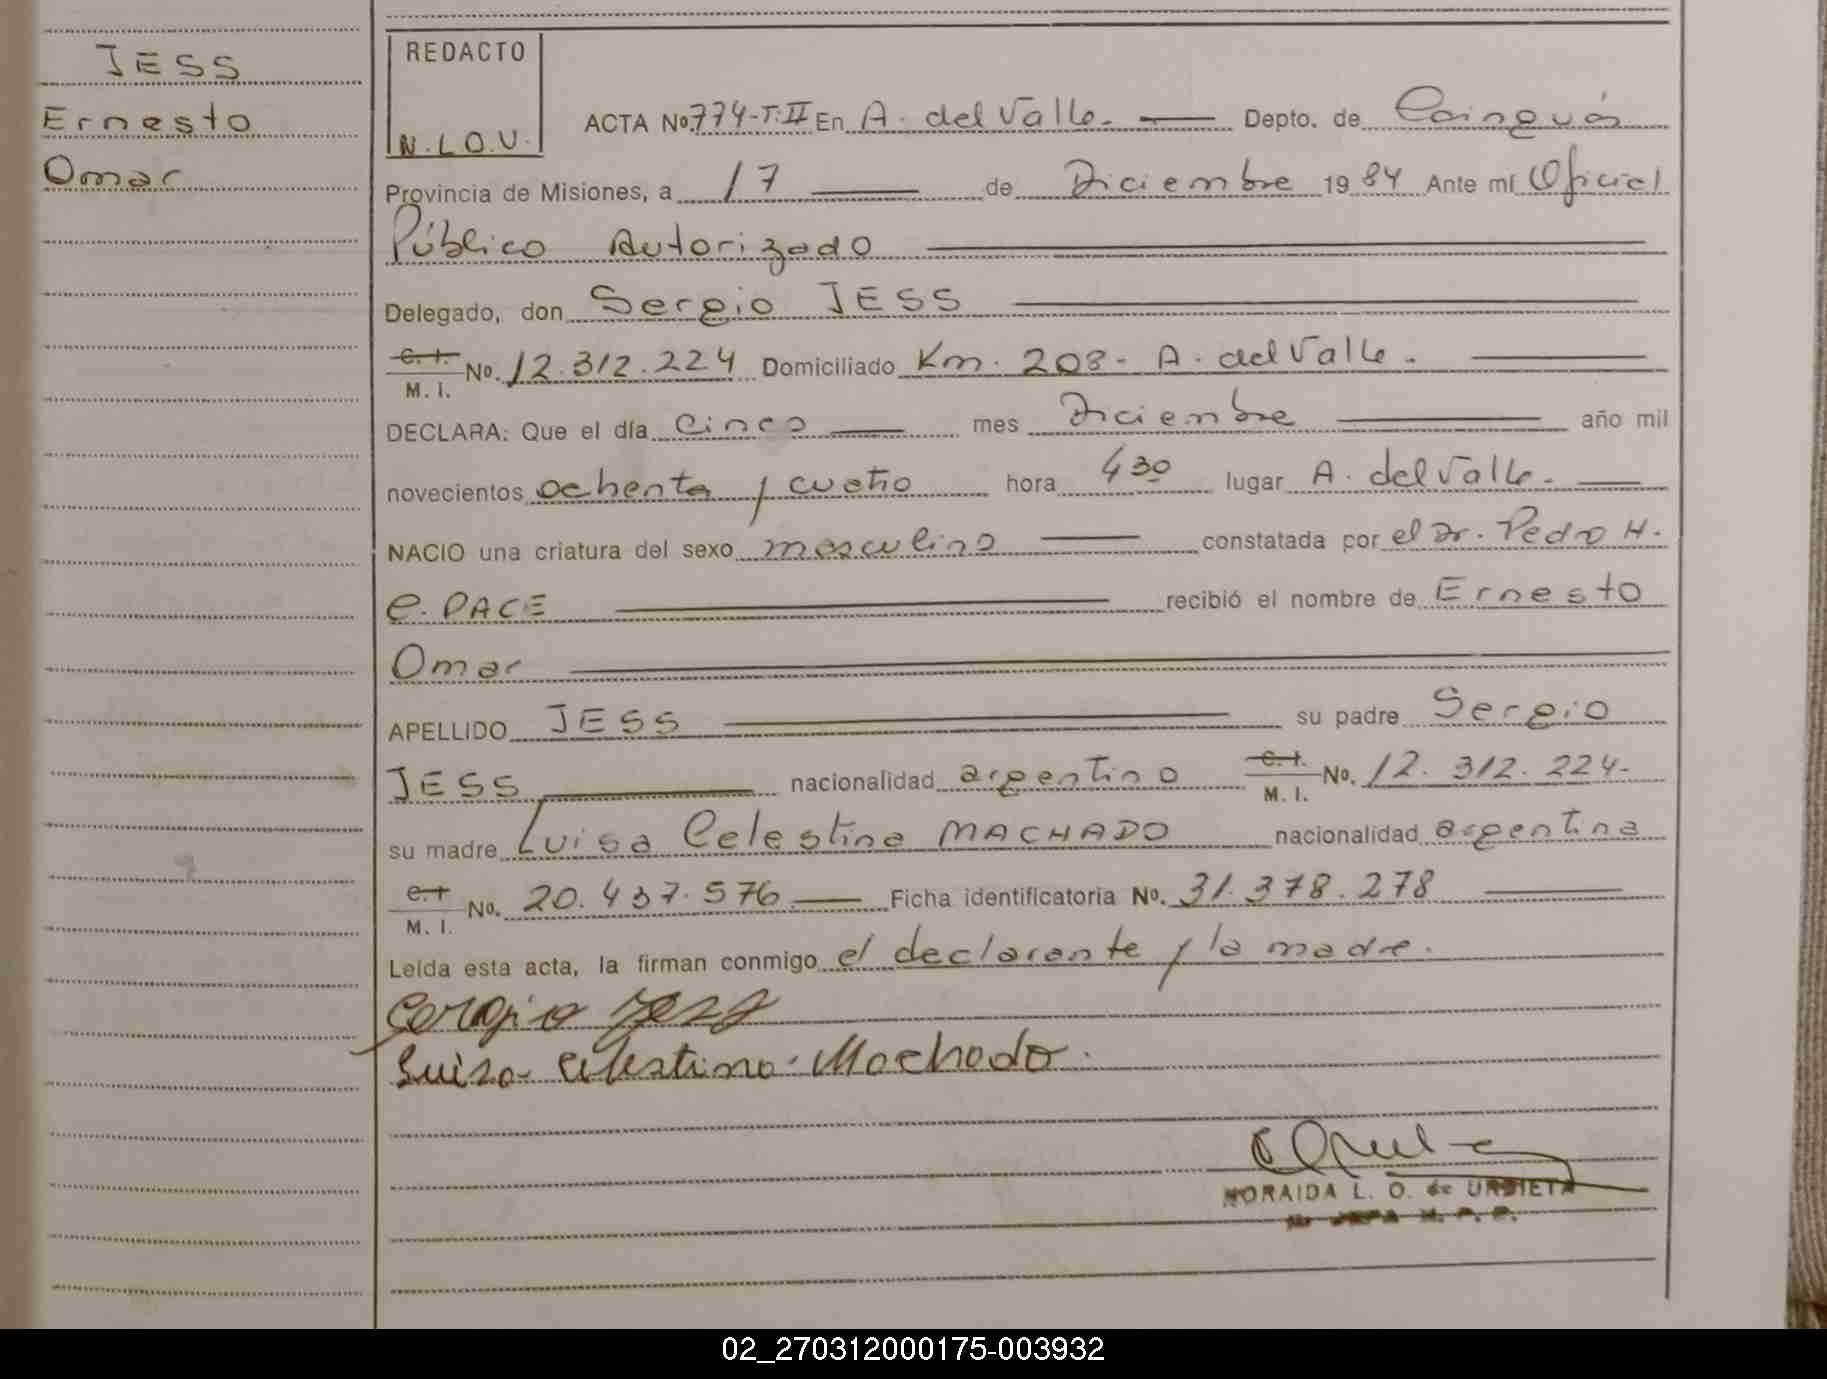 JESS
Ernesto
Omar
REDACTO
N.L.O.U.
ACTA No. 774-T:II En A. del Valle. Depto. de Cainguás
Provincia de Misiones, a 17 de Diciembre 1984 Ante mí Oficial
Público Autorizado
Delegado, don Sergio JESS
C. I.
M. I. No. 12.312.224 Domiciliado Km. 208- A. del Valle.
DECLARA: Que el día cinco mes Diciembre año mil
novecientos ochenta y cuatro hora 4 30 lugar A. del Valle.
NACIO una criatura del sexo masculino constatada por el Dr. Pedro H.
e. PACE recibió el nombre de Ernesto
Omar
APELLIDO JESS su padre Sergio
JESS nacionalidad argentino C. I. M. I. No. 12.312.224-
su madre Luisa Celestina MACHADO nacionalidad argentina
C. I.
M. I. No. 20.437.576 Ficha identificatoria No. 31.378.278
Leída esta acta, la firman conmigo el declarante y la madre.
Sergio Jess
Luisa Celestina Machado.
NORAIDA L. O. de URBIETA
02_270312000175-003932